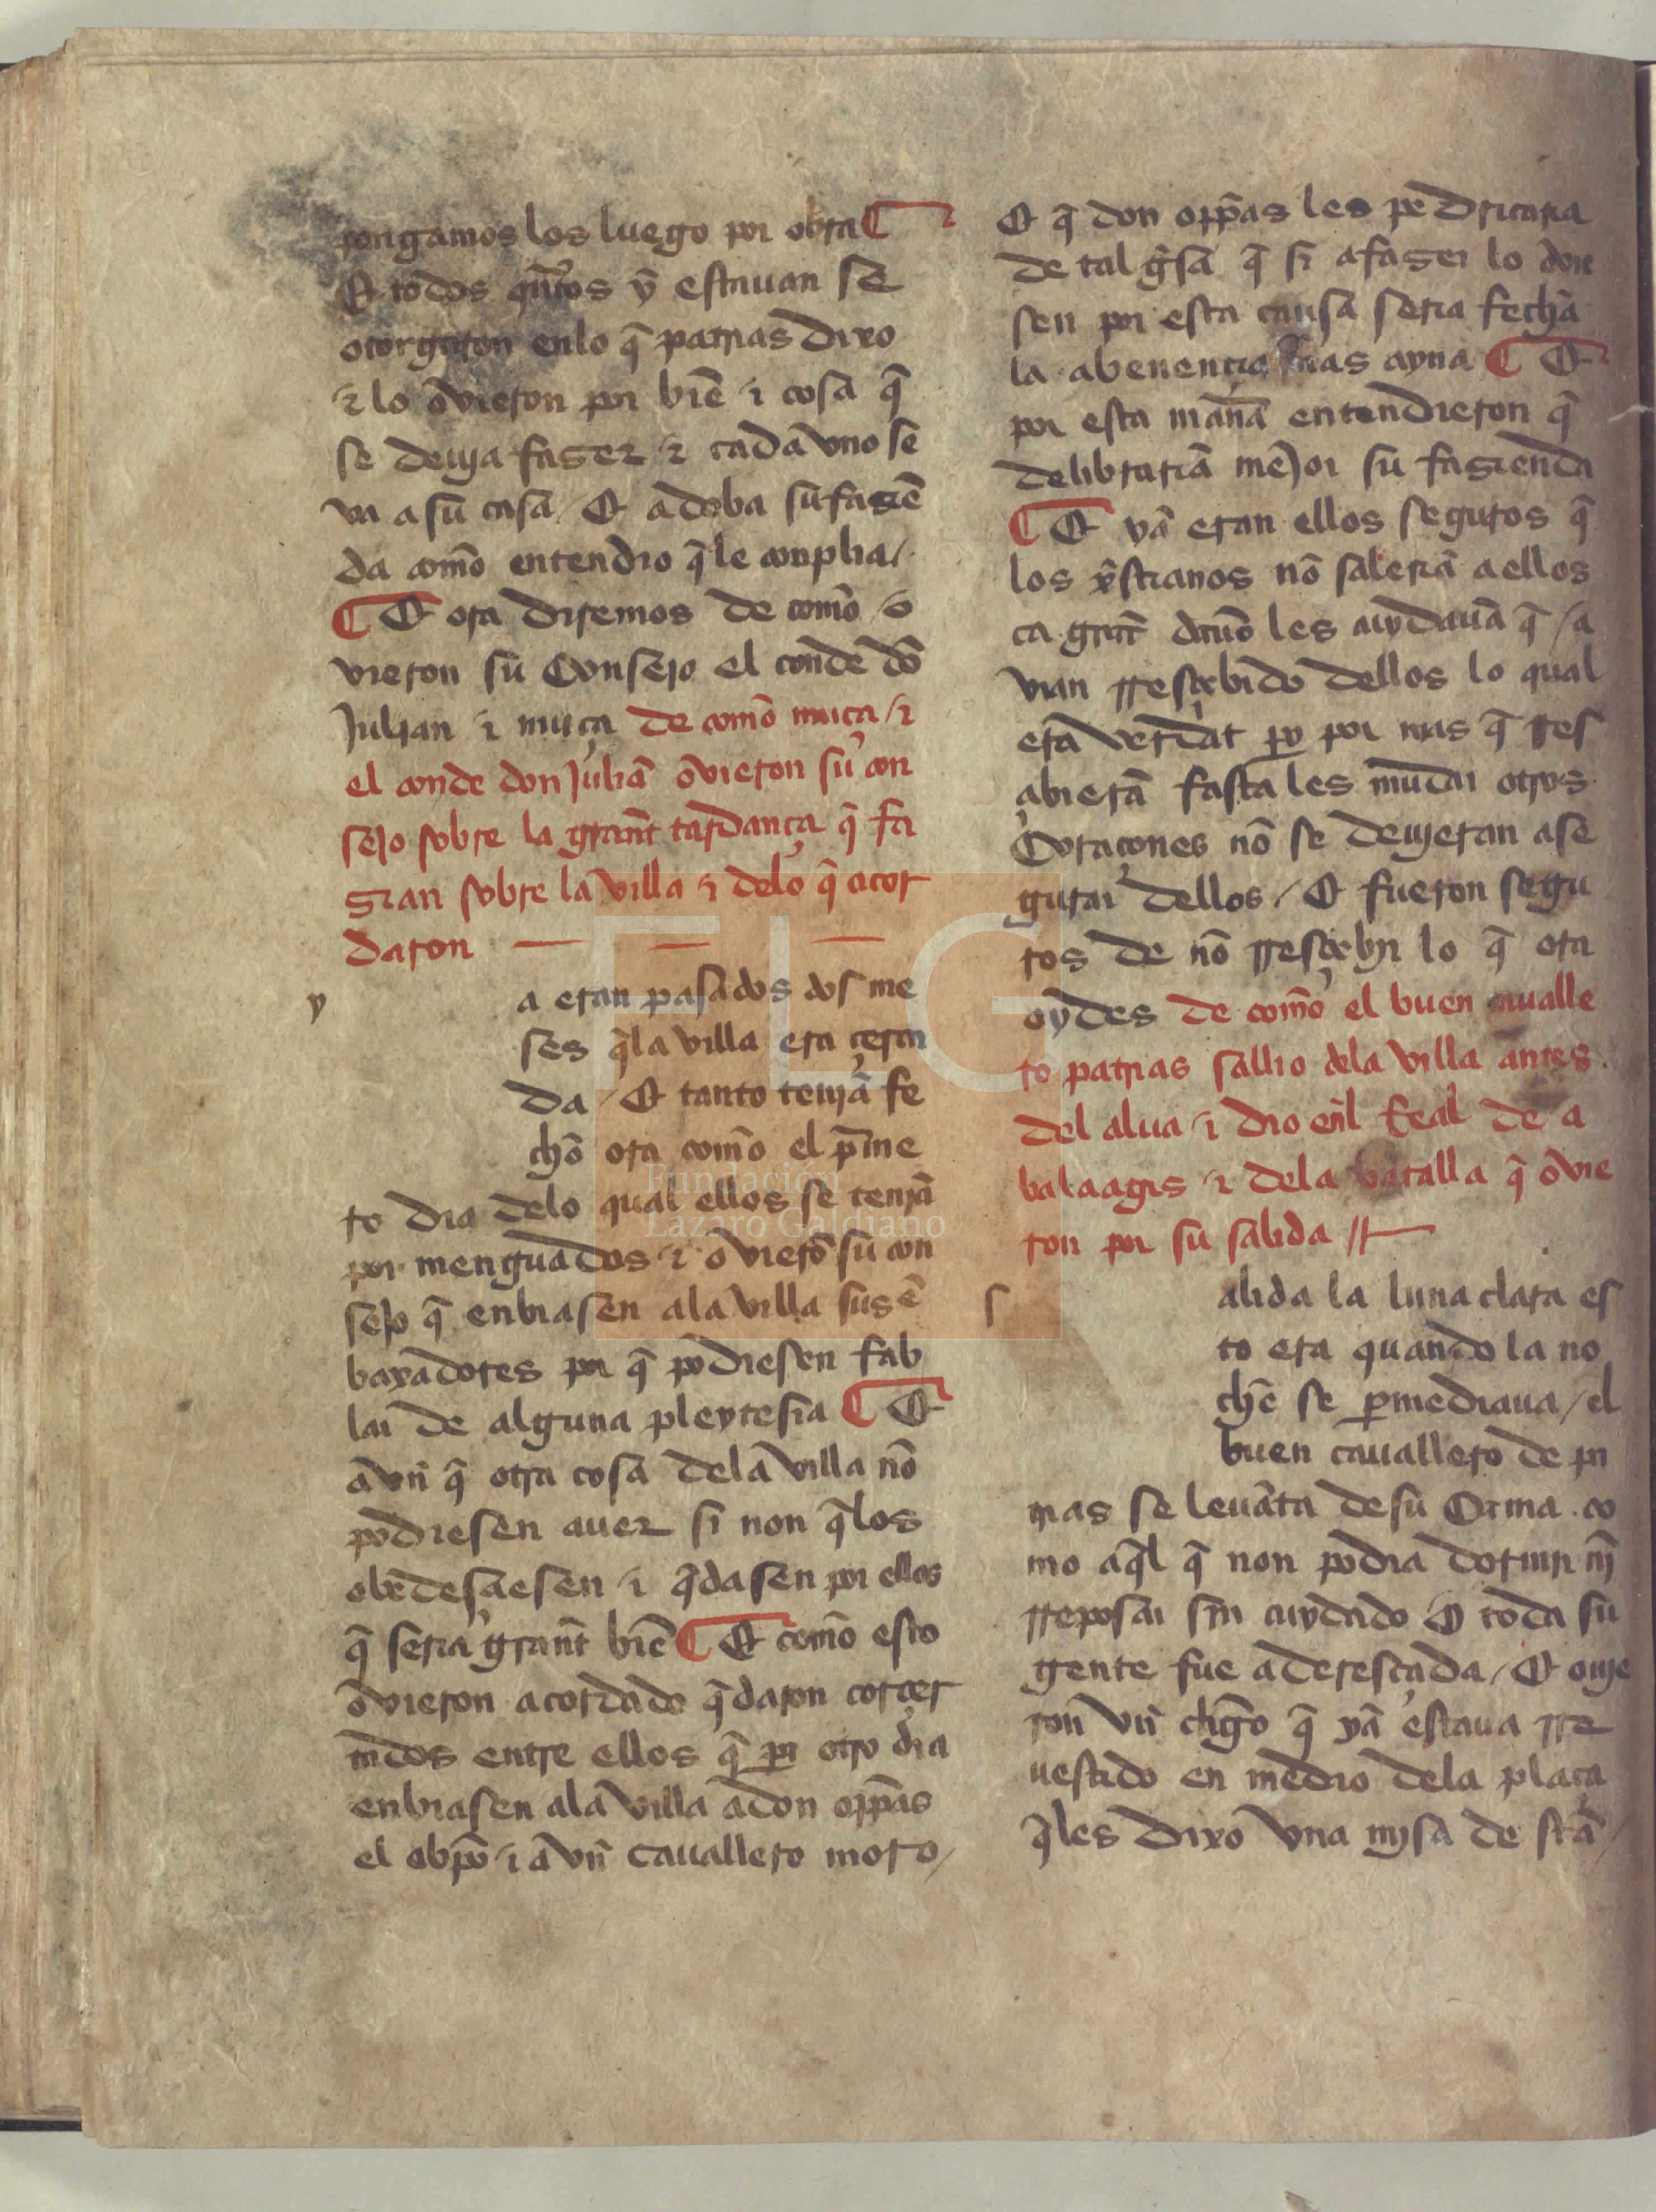 pongamos los luego por obra ¶
Et todos qu̅tos y̅ estauan se
otorgaron enlo q̅ patrias dixo
⁊ lo o̅vieron por bie̅ ⁊ cosa q̅
se deuja faser ⁊ cada vno se
va a su casa / Et adoba su fasie̅
da como̅ entendio q̅ le conplia /.
¶ Et ora diremos de como̅ / o
vieron su Consejo el conde do̅
Julian ⁊ muça de como̅ muça / ⁊
el conde don Julia̅ o̅vieron su con
sejo sobre la gran̅t tardança q̅ fa
sian sobre la villa ⁊ delo q̅ acor
daron
y
a eran pasados dos me
ses q̅la villa era çerca
da / Et tanto tenja̅ fe
cho̅ ora como̅ el p̅me
ro dia delo qual ellos se tenja̅
por menguados ⁊ o̅ viero̅ su con
sejo q̅ enbiasen ala villa sus e̅
baxadores por q̅ podiesen fab
lar de alguna pleytesia ¶ Et
a̅vn̅ q̅ otra cosa dela villa no̅
podiesen auer si non q̅los
obedesçiesen ⁊ q̅dasen por ellos
q̅ seria gran̅t bie̅ ¶ Et como̅ esto
o̅vieron acordado q̅daron
entre ellos q̅ por otro dia
enbiasen ala villa a don opp̅as
el obp̅o ⁊ a vn̅ cauallero moro /
Et q̅ don opp̅as les pedricaria
de tal g̅sa q̅ si afaser lo ouie
sen por esta causa seria fecha
la abenencia mas ayna ¶ Et
por esta man̅a entendieron q̅
delibraria̅ me̅jor su fasienda
¶ Et ya̅ eran ellos seguros q̅
los x̅stianos no̅ saleria̅ a ellos
ca gran̅t les auydaua̅ q̅ / a
vian rresçebido dellos lo qual
era verdat po̅ por mas q̅ rres
çabiera̅ fasta les mudar otros
Coraçones no̅ se deujeran ase
gurar dellos / Et fueron segu
ros de no̅ rresçebjr lo q̅ ora
oydes de como̅ el buen cualle
ro patrias sallio dela villa antes
del alua ⁊ dio en̅l Real de a
balaagis ⁊ dela batalla q̅ o̅vie
ron por su salida //
s
alida la luna clara es
to era quando la no
che̅ se p̅mediaua / el
buen cauallero de pa
trias se leua̅ta de su Cama co
mo aq̅l q̅ non podia dormjr nj̅
rreposar sin cuydado Et toda su
gente fue aderesçada / Et ouje
ron vn̅ cl̅go q̅ ya̅ estaua rre
uestido en medio dela plaça
q̅les dixo vna mjsa de sta̅ /
Fundación
Lázaro Galdiano
FLG